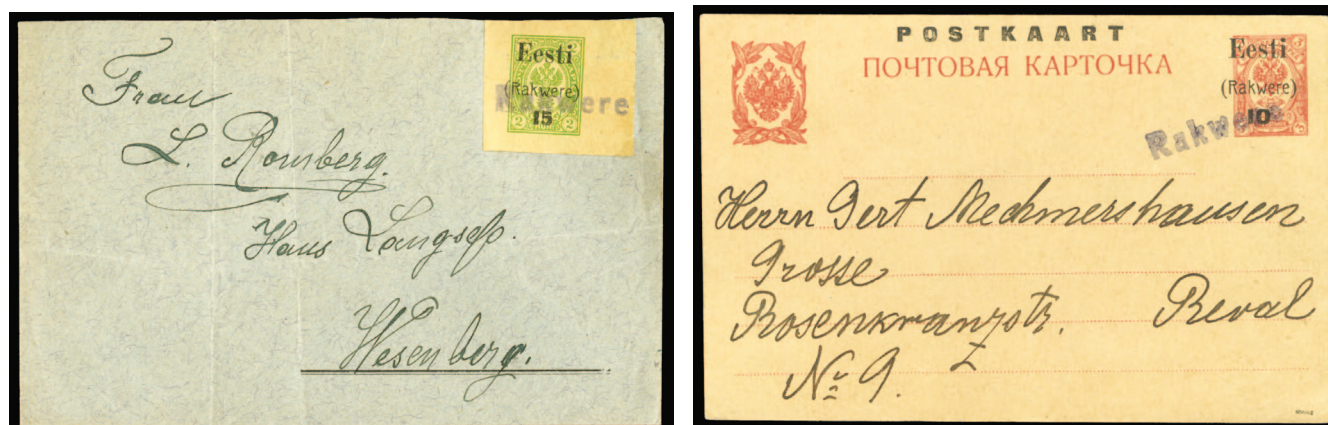 Eesti
(Rakwere)
Rakwere
15
2 2
Frau
L. Romberg.
Haus Langsepp.
Wesenberg.
POSTKAART
ПОЧТОВАЯ КАРТОЧКА
Eesti
(Rakwere)
10
Rakwere
Herrn Gert Mechmershausen
Grosse
Rosenkranzstr. Reval
№ 9.